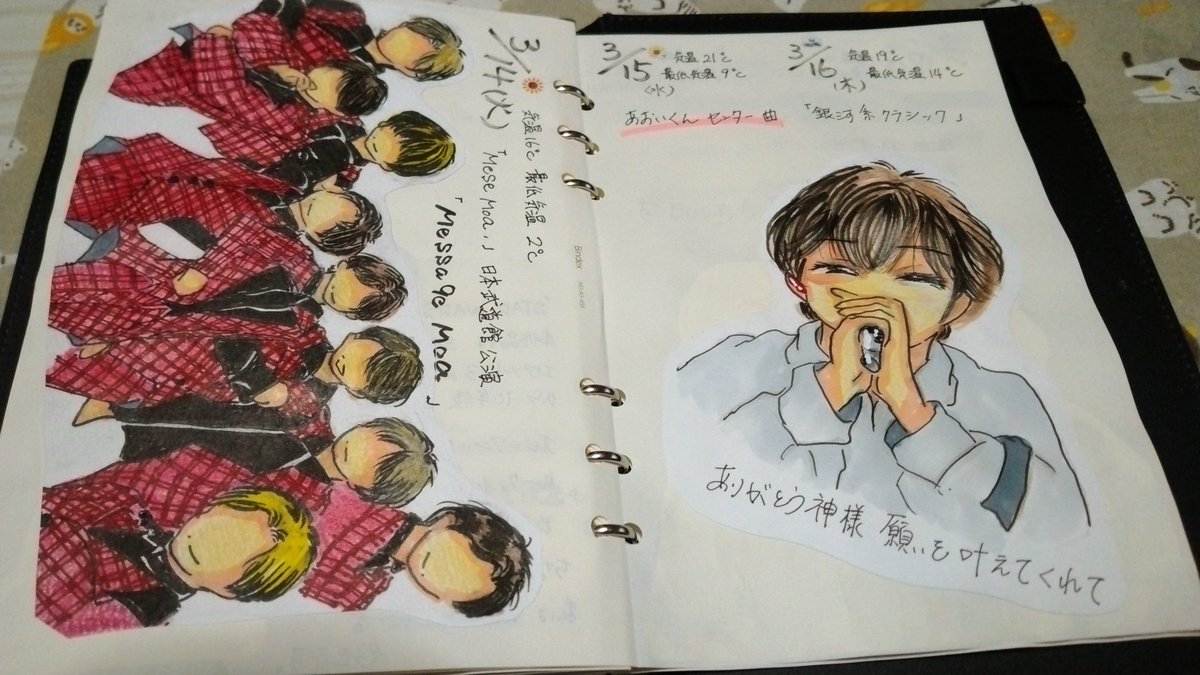 3/14(火)
気温16℃ 最低気温 2℃
「Mese Moa.」日本武道館公演
「Message Moa」
Bindex
3/15
(水)
気温 21℃
最低気温 9℃
3/16
(木)
気温 19℃
最低気温 14℃
あおいくん センター曲 「銀河系クラシック」
ありがとう神様 願いを叶えてくれて